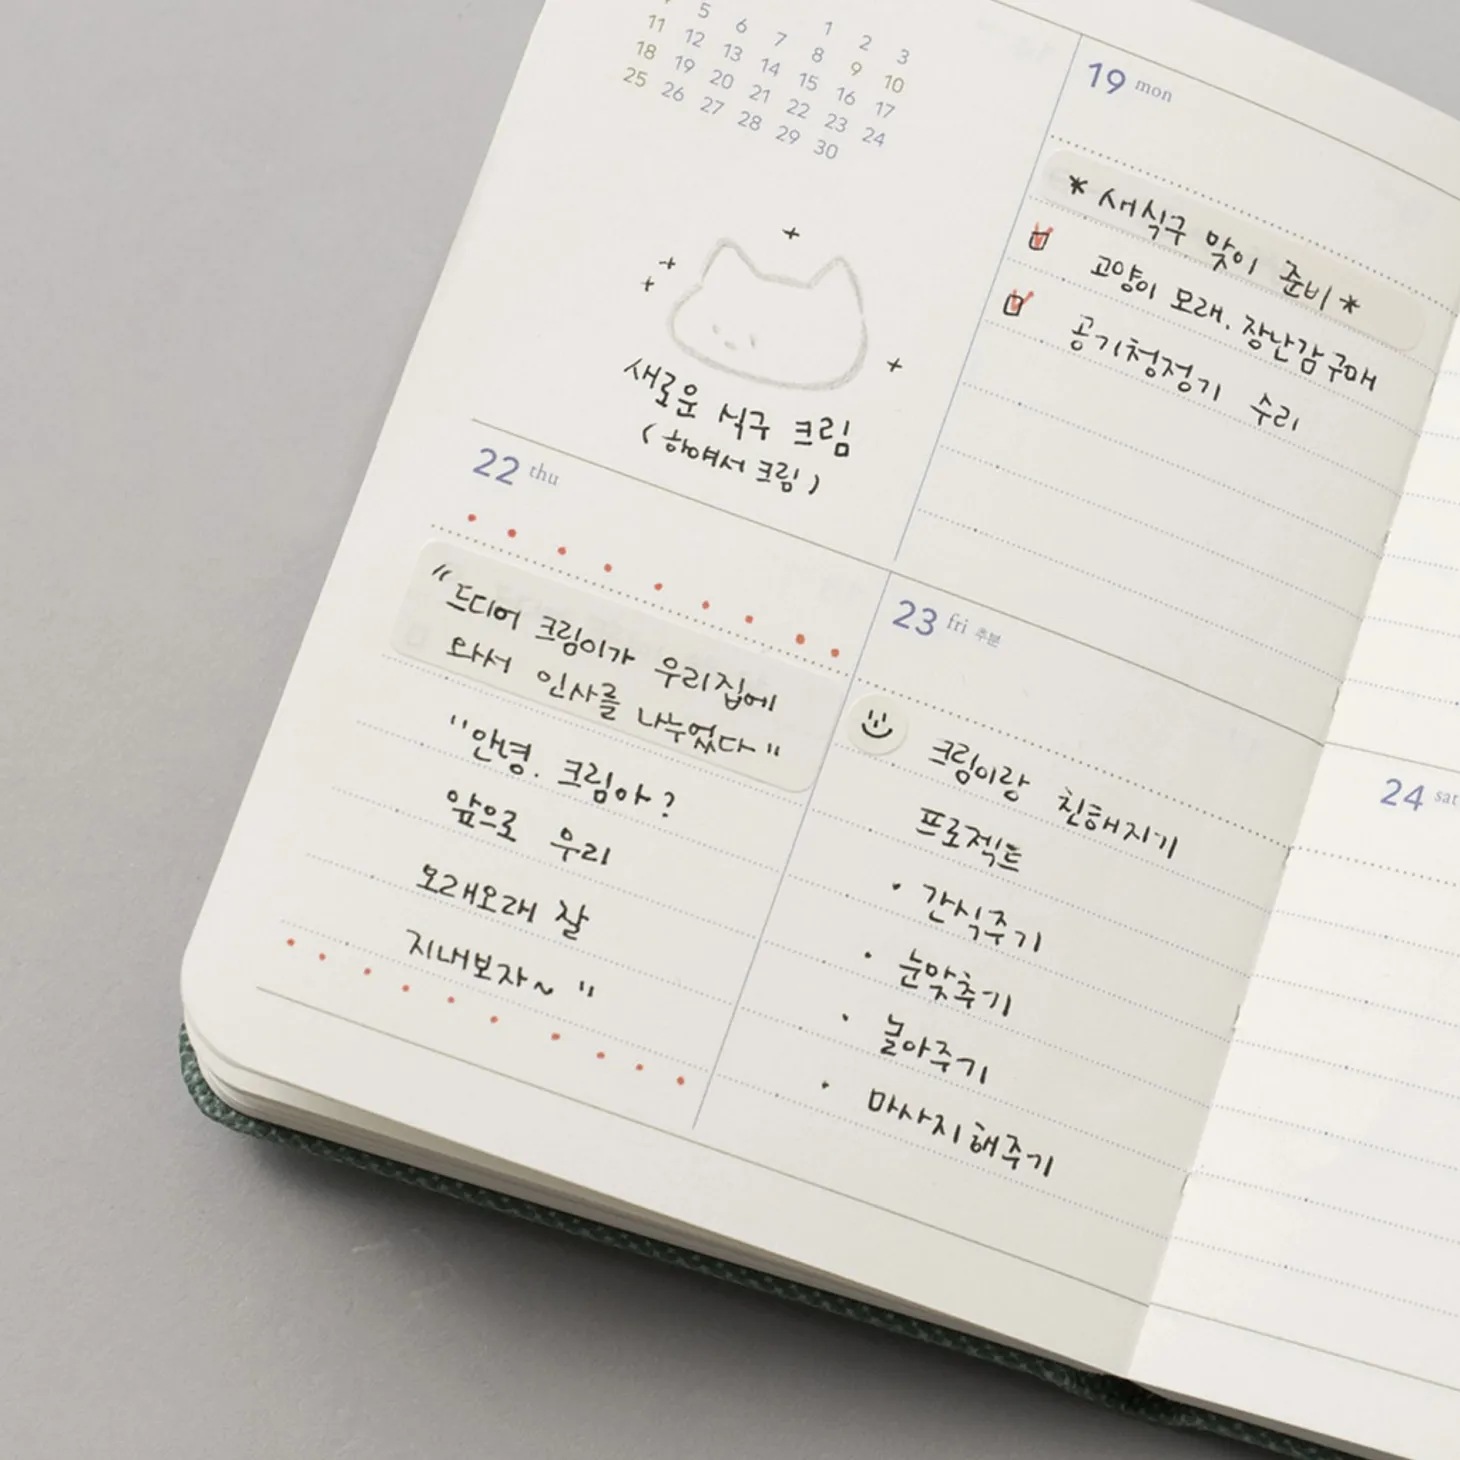 1 2 3
5 6 7 8 9 10
11 12 13 14 15 16 17
18 19 20 21 22 23 24
25 26 27 28 29 30
새로운 식구 크림
(하얘서 크림)
19 mon
*새식구 맞이 준비*
고양이 모래, 장난감 구매
공기청정기 수리
22 thu
"드디어 크림이가 우리집에
와서 인사를 나누었다"
"안녕, 크림아?
앞으로 우리
오래오래 잘
지내보자~"
23 fri 추분
크림이랑 친해지기
프로젝트
• 간식주기
• 눈맞추기
• 놀아주기
• 마사지해주기
24 sat